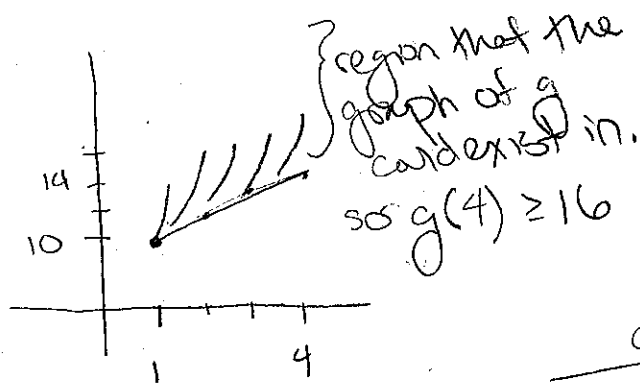 region that the
graph of g
could exist in.
so g(4) ≥ 16
14
10
1
4